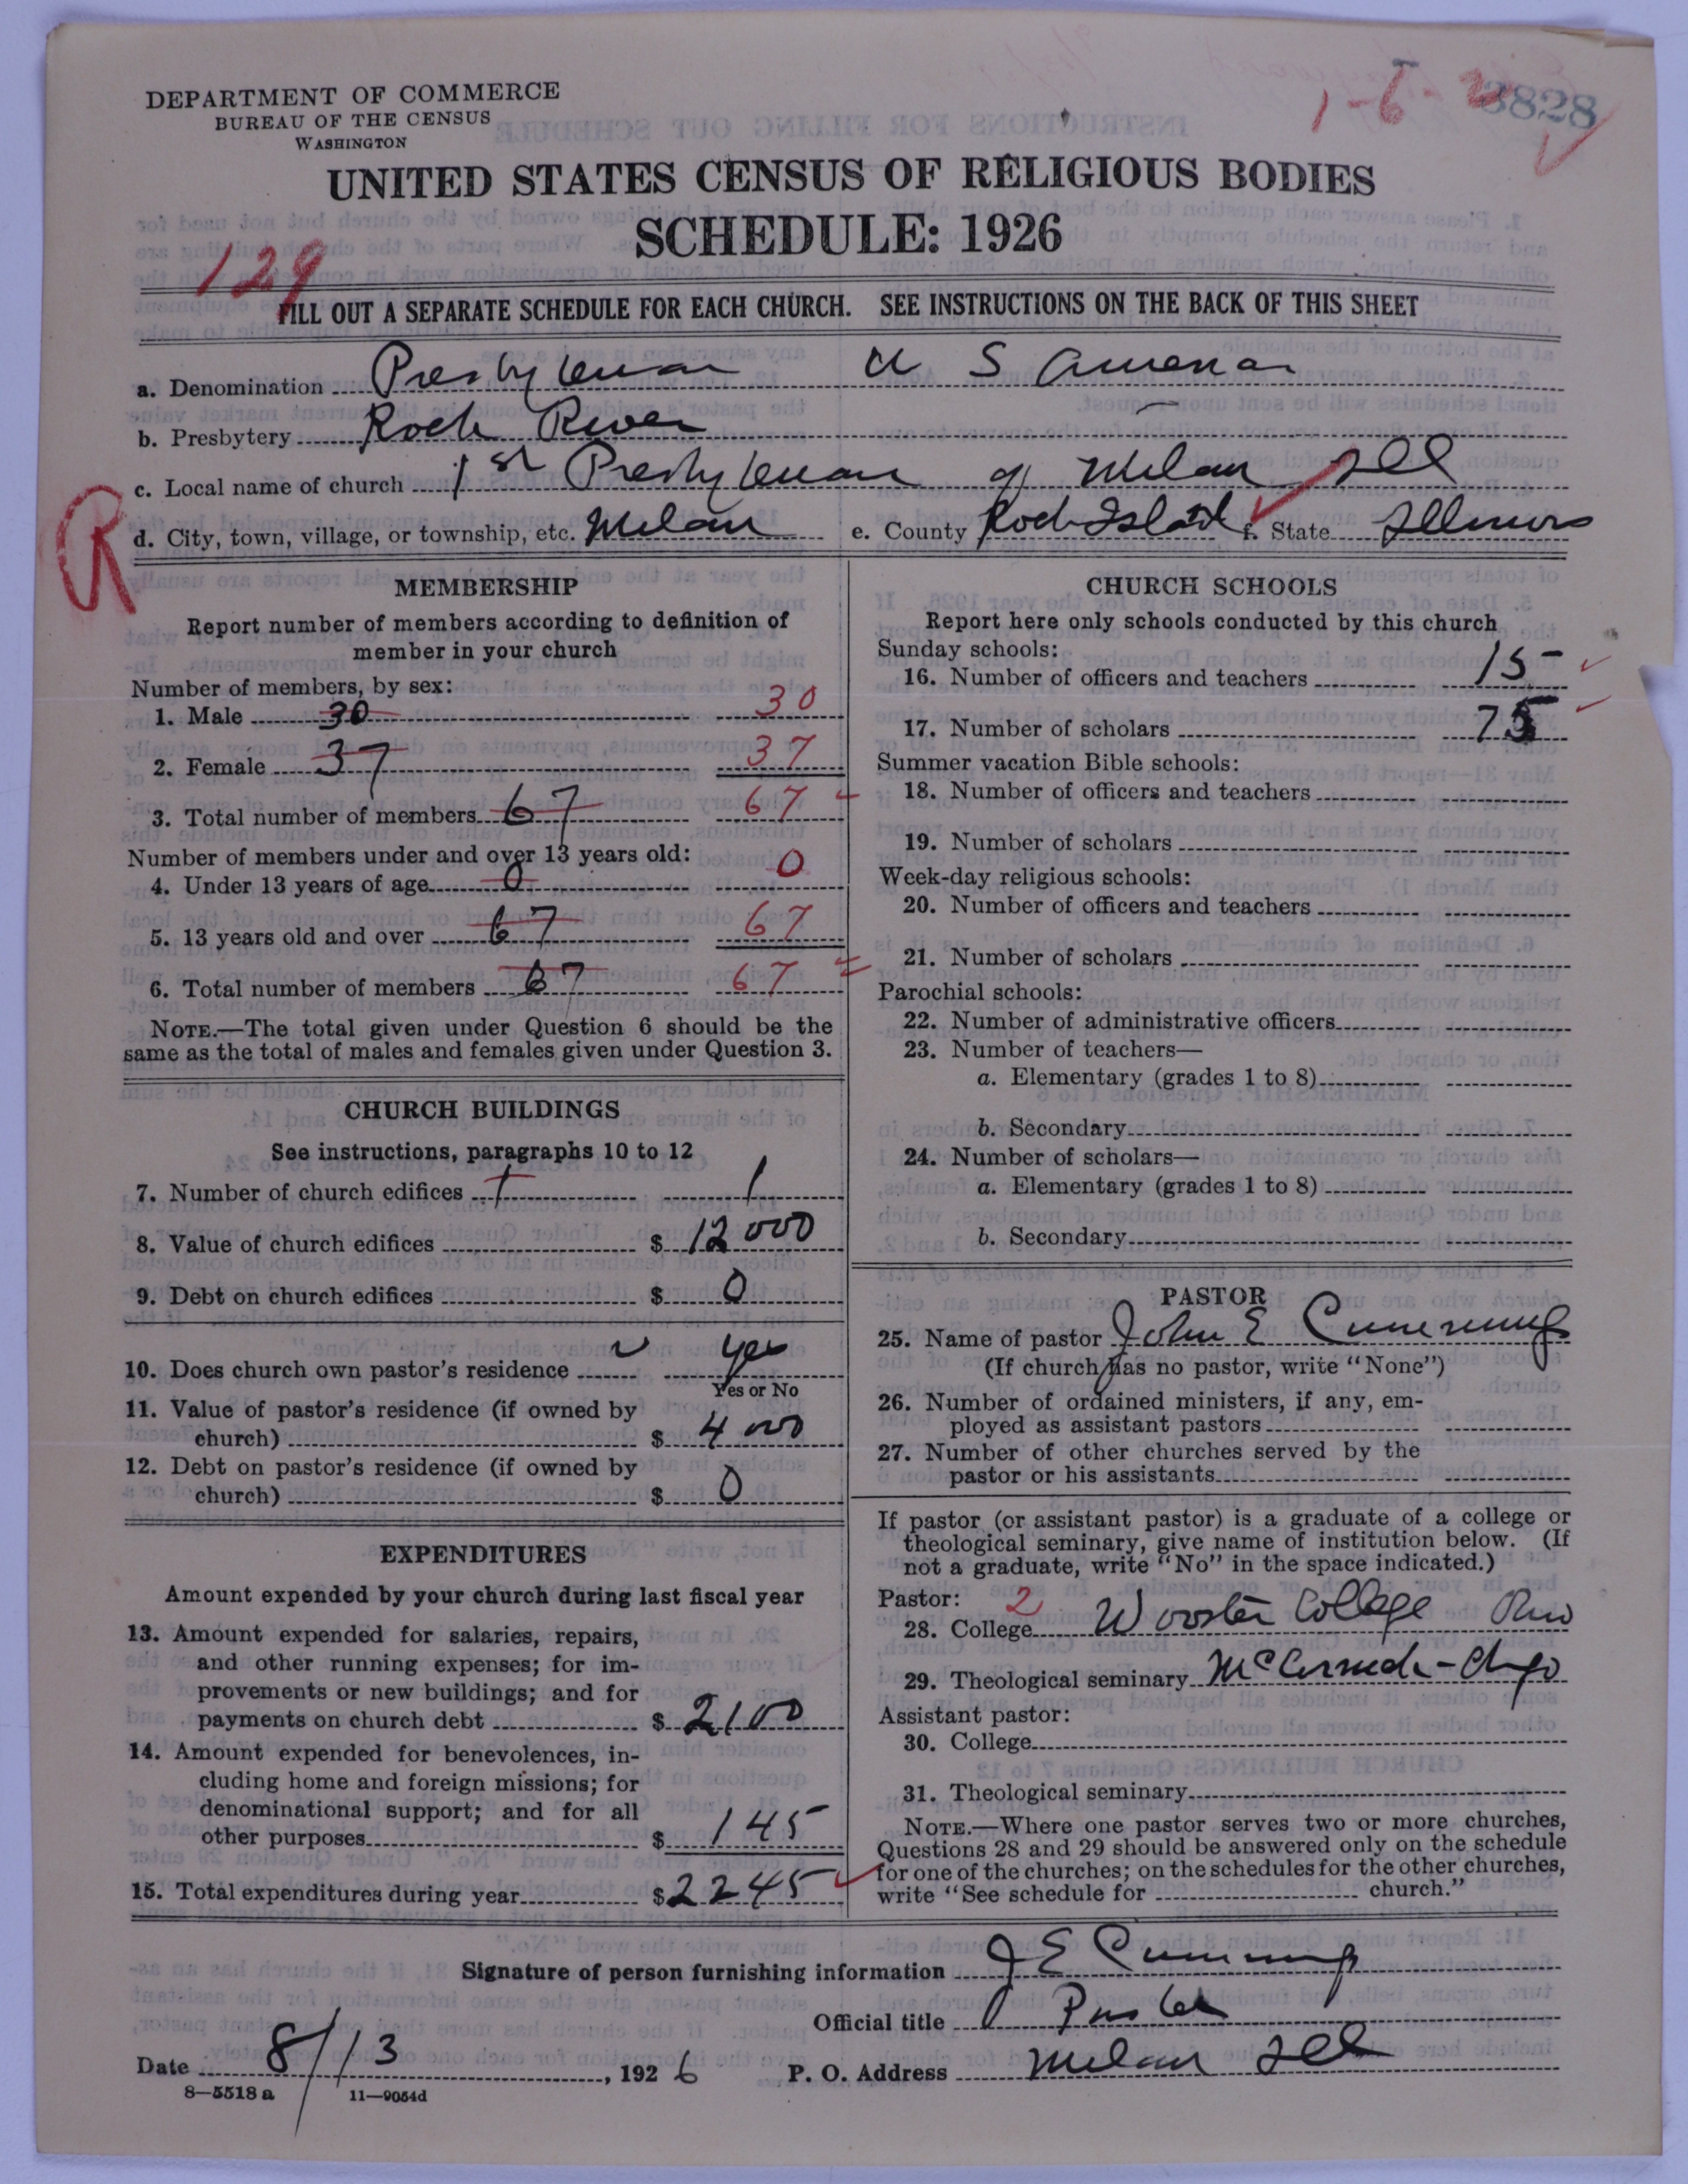 DEPARTMENT OF COMMERCE
BUREAU OF THE CENSUS
WASHINGTON
1-6-2 3828
UNITED STATES CENSUS OF RELIGIOUS BODIES
SCHEDULE: 1926
129
FILL OUT A SEPARATE SCHEDULE FOR EACH CHURCH. SEE INSTRUCTIONS ON THE BACK OF THIS SHEET
a. Denomination Presbyterian U S America
b. Presbytery Rock River
c. Local name of church 1st Presbyterian of Milan Ill
R
d. City, town, village, or township, etc. Milan e. County Rock Island f. State Illinois
MEMBERSHIP
Report number of members according to definition of
member in your church
Number of members, by sex:
1. Male 30 30
2. Female 37 37
3. Total number of members 67 67
Number of members under and over 13 years old:
4. Under 13 years of age 0 0
5. 13 years old and over 67 67
6. Total number of members 67 67
NOTE.—The total given under Question 6 should be the
same as the total of males and females given under Question 3.
CHURCH BUILDINGS
See instructions, paragraphs 10 to 12
7. Number of church edifices 1 1
8. Value of church edifices $ 12000
9. Debt on church edifices $ 0
10. Does church own pastor's residence yes
Yes or No
11. Value of pastor's residence (if owned by
church) $ 4000
12. Debt on pastor's residence (if owned by
church) $ 0
EXPENDITURES
Amount expended by your church during last fiscal year
13. Amount expended for salaries, repairs,
and other running expenses; for im-
provements or new buildings; and for
payments on church debt $ 2100
14. Amount expended for benevolences, in-
cluding home and foreign missions; for
denominational support; and for all
other purposes $ 145
15. Total expenditures during year $ 2245
CHURCH SCHOOLS
Report here only schools conducted by this church
Sunday schools:
16. Number of officers and teachers 15
17. Number of scholars 75
Summer vacation Bible schools:
18. Number of officers and teachers
19. Number of scholars
Week-day religious schools:
20. Number of officers and teachers
21. Number of scholars
Parochial schools:
22. Number of administrative officers
23. Number of teachers—
a. Elementary (grades 1 to 8)
b. Secondary
24. Number of scholars—
a. Elementary (grades 1 to 8)
b. Secondary
PASTOR
25. Name of pastor John E Cummings
(If church has no pastor, write "None")
26. Number of ordained ministers, if any, em-
ployed as assistant pastors
27. Number of other churches served by the
pastor or his assistants
If pastor (or assistant pastor) is a graduate of a college or
theological seminary, give name of institution below. (If
not a graduate, write "No" in the space indicated.)
Pastor: 2
28. College Wooster College
29. Theological seminary McCormick-Chgo
Assistant pastor:
30. College
31. Theological seminary
NOTE.—Where one pastor serves two or more churches,
Questions 28 and 29 should be answered only on the schedule
for one of the churches; on the schedules for the other churches,
write "See schedule for church."
Signature of person furnishing information J E Cummings
Official title Pastor
Date 8/13, 1926 P. O. Address Milan Ill
8—5518 a 11—9054d